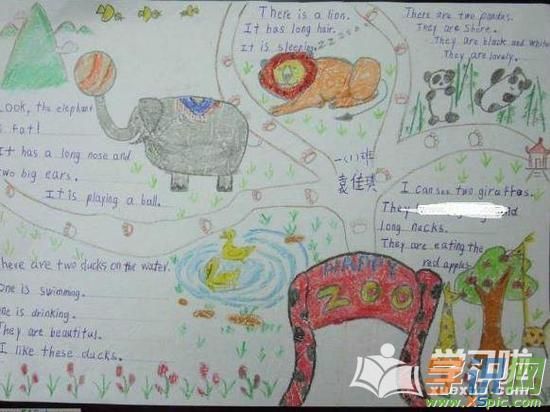 There is a lion.
It has long hair.
It is sleeping.
zzzzzz
There are two pandas.
They are shore.
They are black and white
They are lovely.
Look, the elephant
is fat!
It has a long nose and
two big ears.
It is playing a ball.
一(1)班
I can see two giraffes.
They
long necks.
They are eating the
red apples
There are two ducks on the water.
One is swimming.
One is drinking.
They are beautiful.
I like these ducks.
HAPPY
ZOO
学习啦
xuexila.com
www.xspic.com